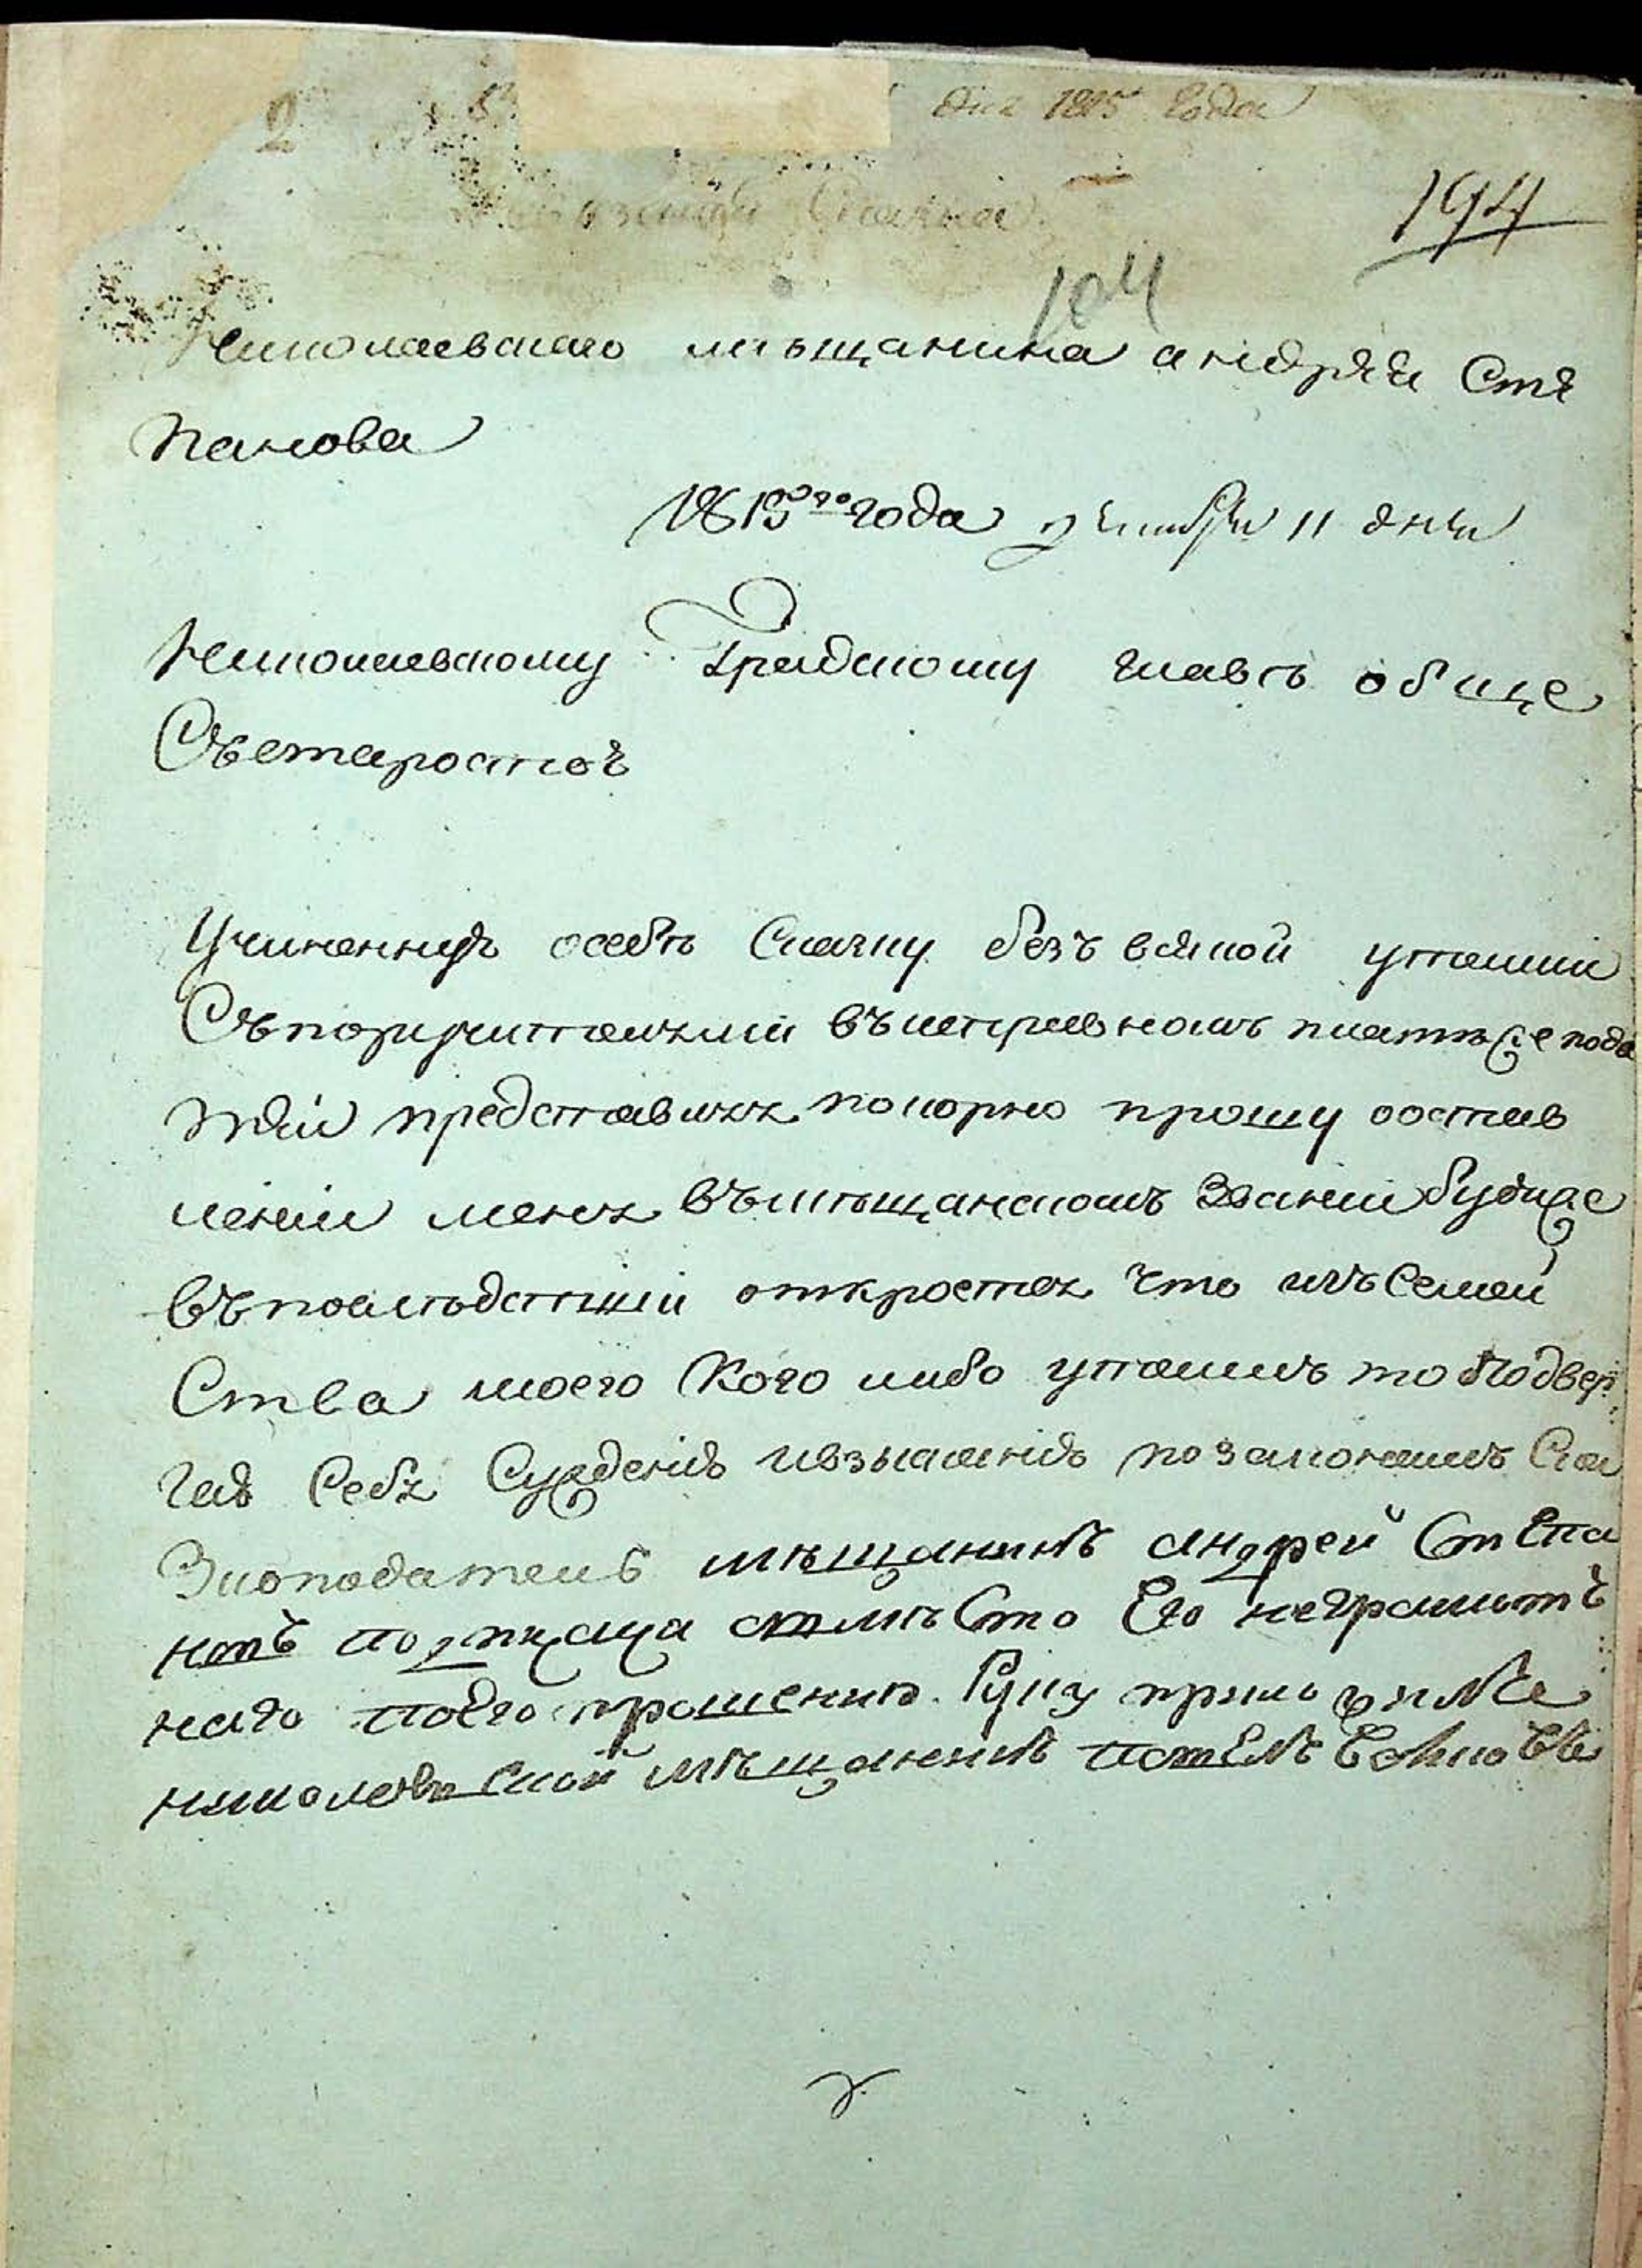 дня 1815 года
Сказка
194
104
Николаевскаго мѣщанина андрея Сте
панова
1815го года декабря 11 дня
Николаевскому Градскому главѣ обще
Състаростою
Учиненную осебѣ Скаску безъ всякой утайки
Съпоручительми въисправномъ платеже пода
тей представляя покорно прошу оостав
лении меня въмѣщанскомъ Звании будиже
въпослѣдствии откроется что изъсемей
Ства моего Кого либо утаилъ то Подвер
гаю Себя Суждению ивзысканию позаконамъ Ска
Зкоподатель мѣщанинъ андрей Степа
новъ
вмѣсто Его неграмотъ
наго поЕго прошению Руку приложилъ
николаевской мѣщанинъ